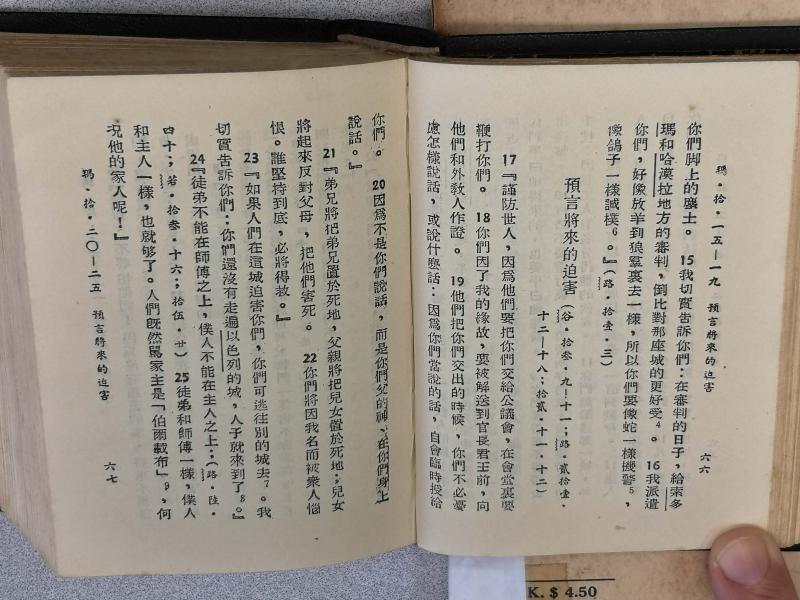 瑪·拾·一五—一九　預言將來的迫害　六六
你們脚上的塵土。15我切實告訴你們：在審判的日子，給索多
瑪和哈漠拉地方的審判，倒比對那座城的更好受4。16我派遣
你們，好像放羊到狼羣裏去一樣，所以你們要像蛇一樣機警5，
像鴿子一樣誠樸6。』（路·拾壹·三）
預言將來的迫害（谷·拾叁·九！十一；路·貳拾壹·
十二—十八；拾貳·十一·十二）
17『謹防世人，因爲他們要把你們交給公議會，在會堂裏要
鞭打你們。18你們因了我的緣故，要被解送到官長君王前，向
他們和外敎人作證。19他們把你們交出的時候，你們不必憂
慮怎樣說話，或說什麽話：因爲你們當說的話，自會臨時授給
你們。20因爲不是你們說話，而是你們父的神，在你們身上
說話。』
21『弟兄將把弟兄置於死地，父親將把兒女置於死地；兒女
將起來反對父母，把他們害死。22你們將因我名而被衆人惱
恨。誰堅持到底，必將得救。』
23『如果人們在這城迫害你們，你們可逃往別的城去7。我
切實告訴你們：你們還沒有走遍以色列的城，人子就來到了8。』
24『徒弟不能在師傅之上，僕人不能在主人之上：（路·陸·
四十；若·拾叁·十六；拾伍·廿）25徒弟和師傅一樣，僕人
和主人一樣，也就够了。人們旣然罵家主是「伯爾載布」9，何
况他的家人呢！』
瑪·拾·二〇—二五　預言將來的迫害　六七
K. $ 4.50